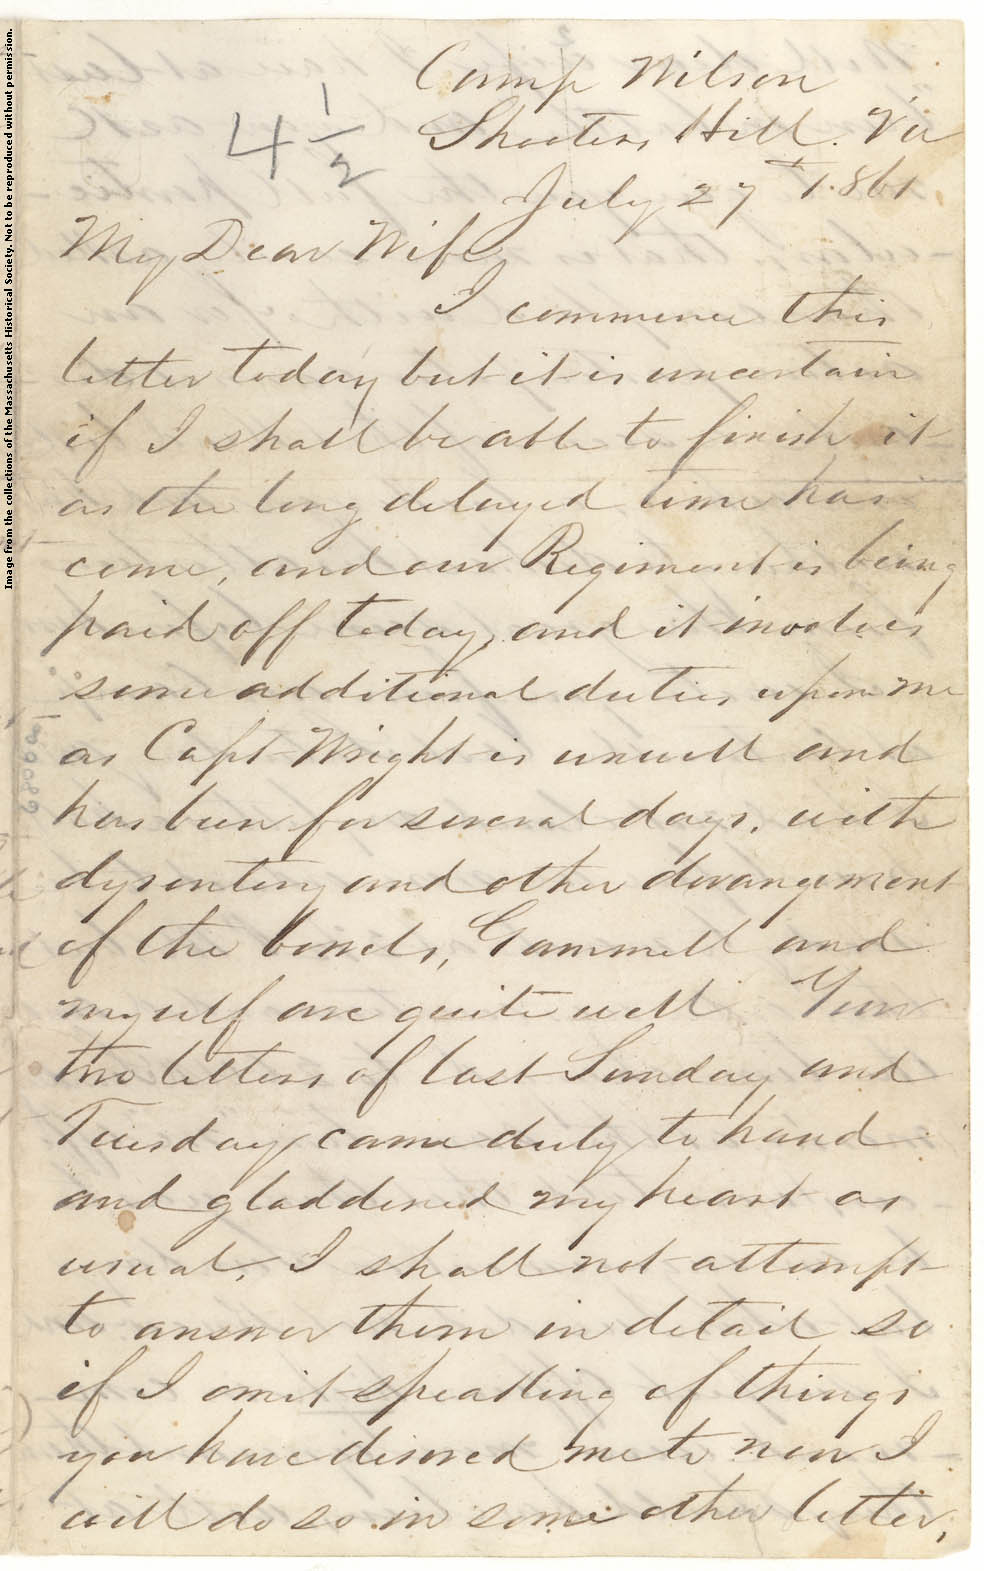 Camp Wilson
Shooters Hill. Va
4 1/2
July 27th 1.861
My Dear Wife
I commence this
letter today but it is uncertain
if I shall be able to finish it
as the long delayed time has
come, and our Regiment is being
paid off today, and it involves
some additional duties upon me
as Capt Wright is unwell and
has been for several days, with
dysentery and other derangement
of the bowels, Gammell and
myself are quite well. Your
two letters of last Sunday and
Tuesday came duly to hand
and gladdened my heart as
usual, I shall not attempt
to answer them in detail so
if I omit speaking of things
you have disired me to now I
will do so in some other letter,
Image from the collections of the Massachusetts Historical Society. Not to be reproduced without permission.